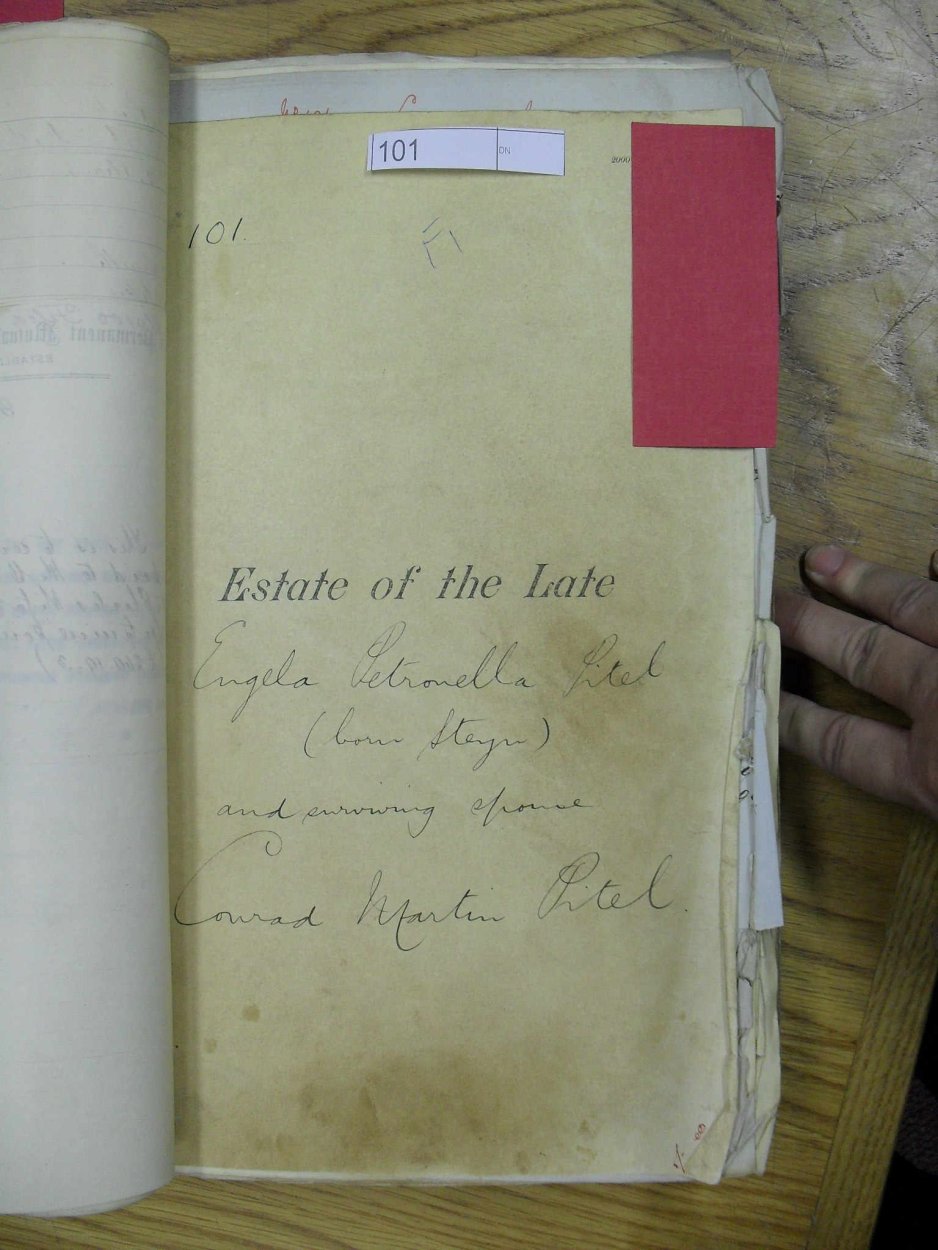 101
DN
2000
101.
Estate of the Late
Engela Petronella Pitel
(born Steyn)
and surviving spouse
Conrad Martin Pitel.